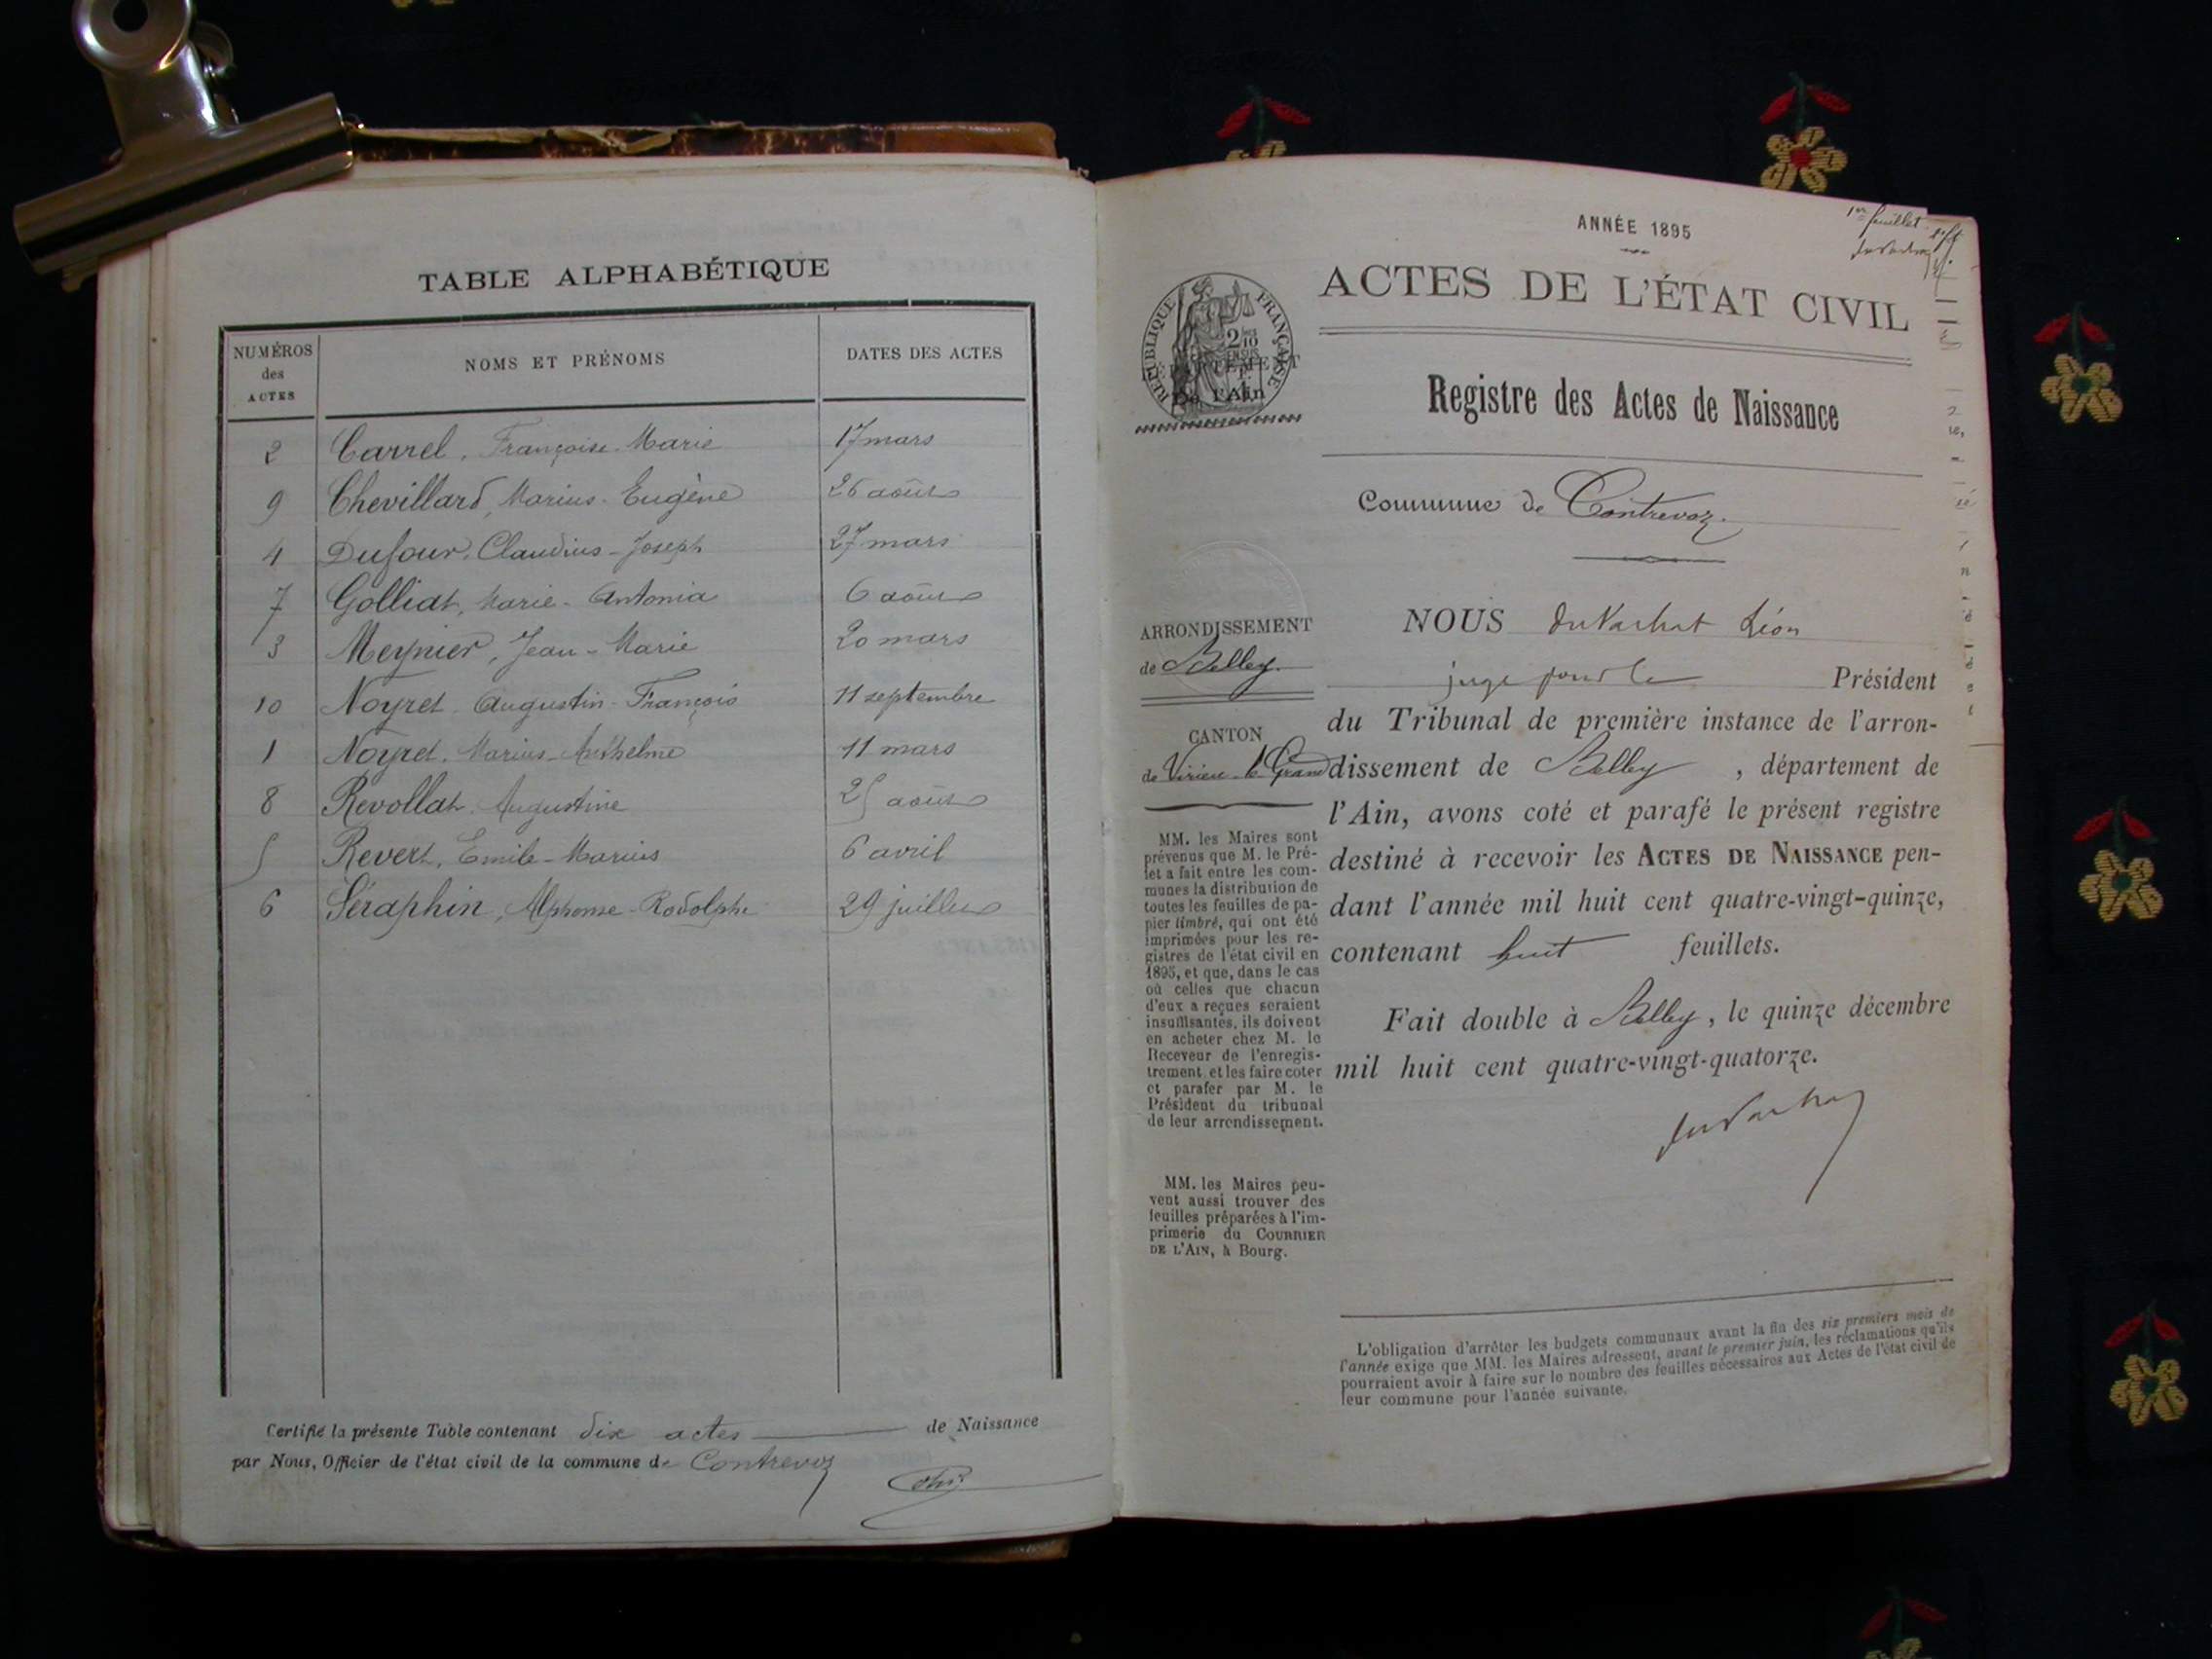 TABLE ALPHABÉTIQUE
NUMÉROS des ACTES
NOMS ET PRÉNOMS
DATES DES ACTES
2 Carrel, Françoise-Marie 17 mars
9 Chevillard, Marius-Eugène 26 août
4 Dufour, Claudius-Joseph 27 mars
7 Golliat, Marie-Antonia 6 août
3 Meynier, Jean-Marie 20 mars
10 Noyret Augustin-François 11 septembre
1 Noyret, Marius-Anthelme 11 mars
8 Revollat Augustine 25 août
5 Revert, Emile-Marius 6 avril
6 Séraphin, Alphonse-Rodolphe 29 juillet
Certifié la présente Table contenant dix actes de Naissance
par Nous, Officier de l'état civil de la commune de Contrevoz
ANNÉE 1895
1er feuillet
ACTES DE L'ÉTAT CIVIL
RÉPUBLIQUE FRANÇAISE
De l'Ain
Registre des Actes de Naissance
Commune de Contrevoz
ARRONDISSEMENT
de Belley
CANTON
de Virieu-le-Grand
MM. les Maires sont
prévenus que M. le Pré-
fet a fait entre les com-
munes la distribution de
toutes les feuilles de pa-
pier timbré, qui ont été
imprimées pour les re-
gistres de l'état civil en
1895, et que, dans le cas
où celles que chacun
d'eux a reçues seraient
insuffisantes, ils doivent
en acheter chez M. le
Receveur de l'enregis-
trement, et les faire coter
et parafer par M. le
Président du tribunal
de leur arrondissement.
MM. les Maires peu-
vent aussi trouver des
feuilles préparées à l'im-
primerie du COURRIER
DE L'AIN, à Bourg.
NOUS duVachat Léon
juge pour le Président
du Tribunal de première instance de l'arron-
dissement de Belley, département de
l'Ain, avons coté et parafé le présent registre
destiné à recevoir les ACTES DE NAISSANCE pen-
dant l'année mil huit cent quatre-vingt-quinze,
contenant huit feuillets.
Fait double à Belley, le quinze décembre
mil huit cent quatre-vingt-quatorze.
duVachat
L'obligation d'arrêter les budgets communaux avant la fin des six premiers mois de
l'année exige que MM. les Maires adressent, avant le premier juin, les réclamations qu'ils
pourraient avoir à faire sur le nombre des feuilles nécessaires aux Actes de l'état civil de
leur commune pour l'année suivante.